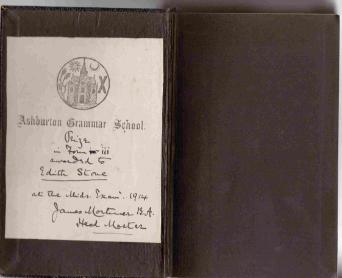 Ashburton Grammar School.
Prize
in Form III
awarded to
Edith Stone
at the Mids. Examn. 1914
James Mortimer B.A.
Head Master